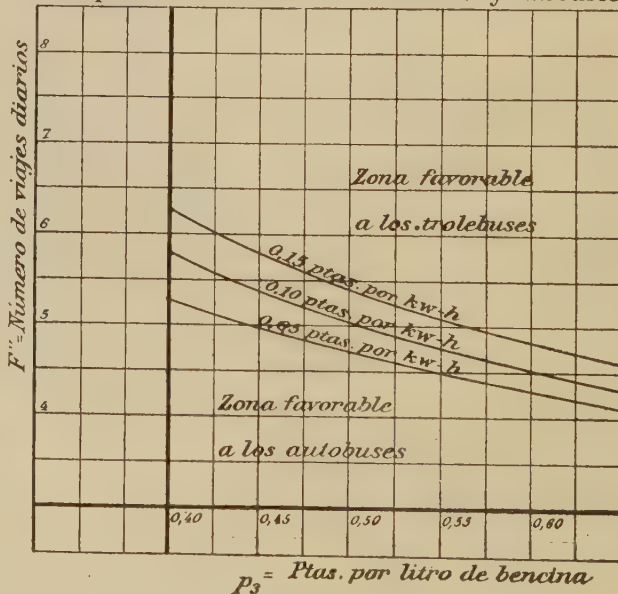 F''=Número de viajes diarios
8
7
6
5
4
Zona favorable
a los trolebuses
0,15 ptas. por kw-h
0,10 ptas. por kw-h
0,05 ptas. por kw-h
Zona favorable
a los autobuses
0,40 0,45 0,50 0,55 0,60
p₃= Ptas. por litro de bencina